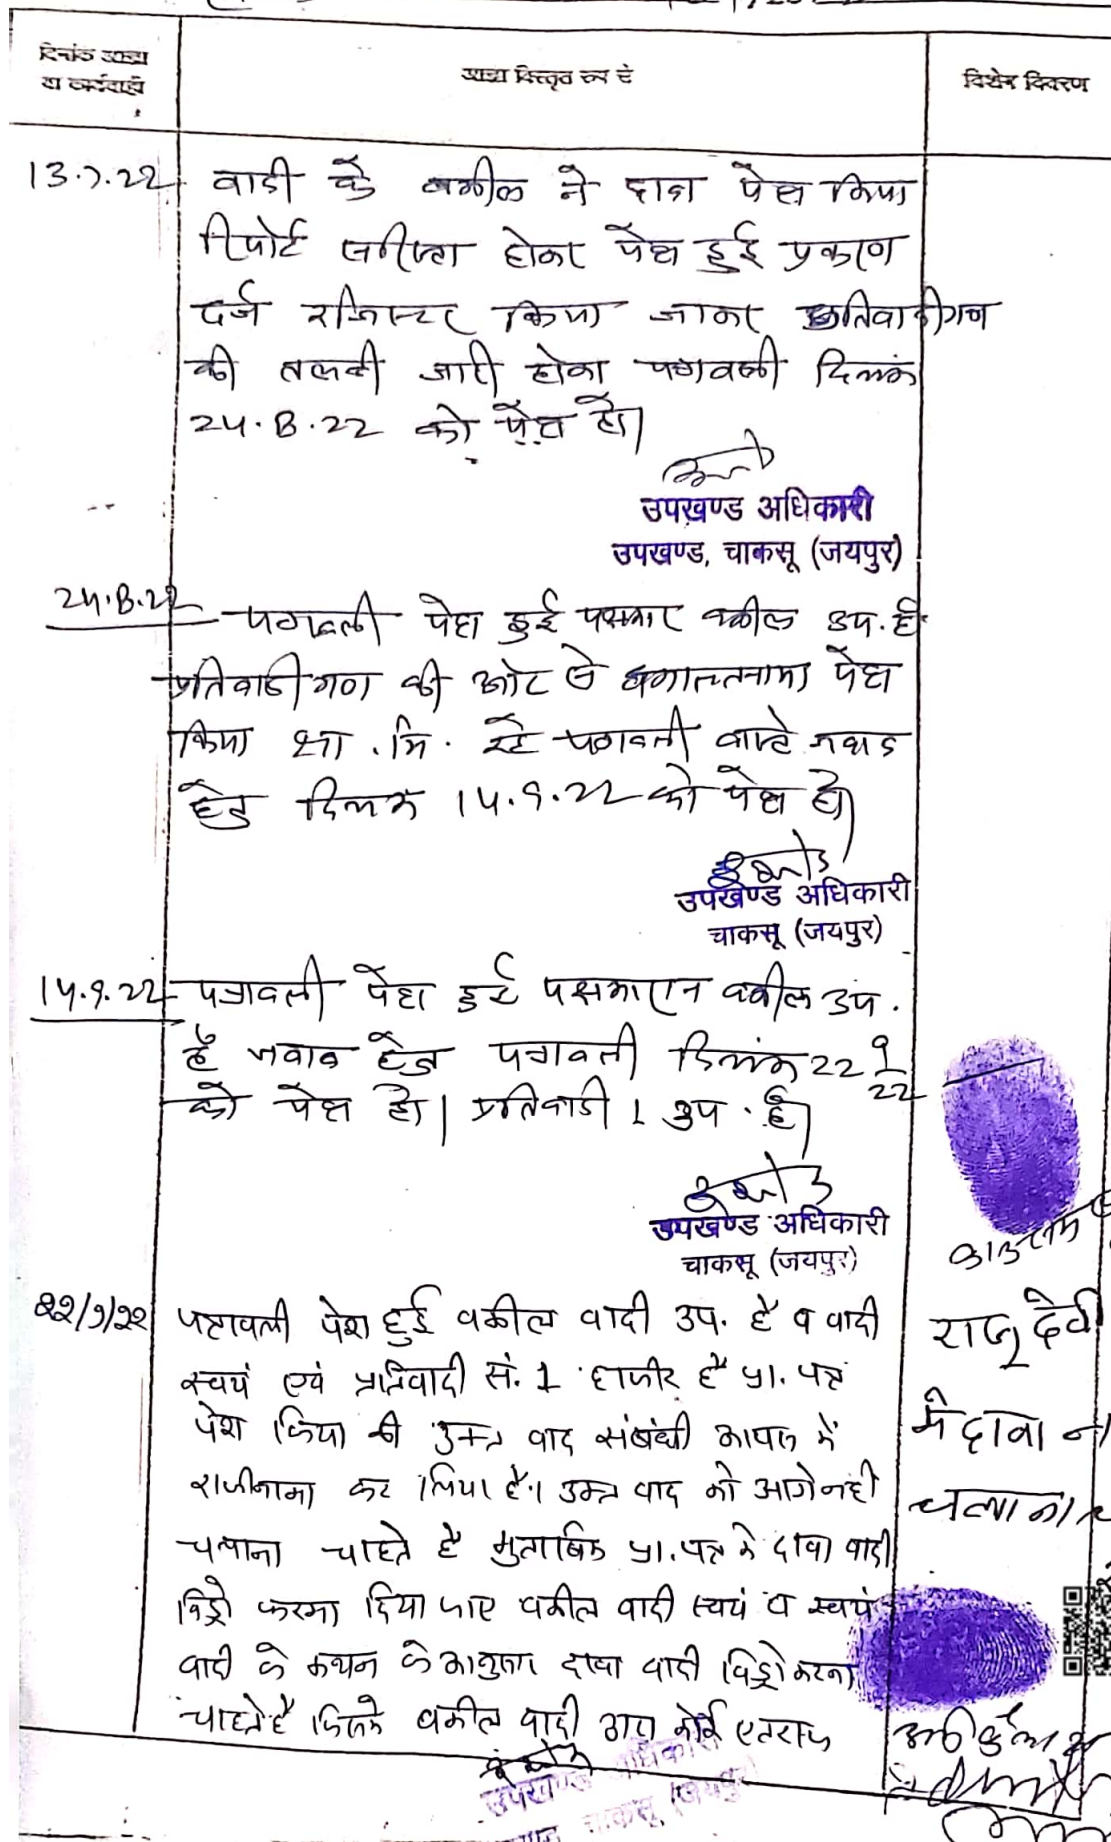 दिनांक आज्ञा
या कार्यवाही
आज्ञा विस्तृत रूप से
विशेष विवरण
13.7.22 वादी के वकील ने दावा पेश किया
रिपोर्ट होकर पेश हुई प्रकरण
दर्ज रजिस्टर किया जाकर प्रतिवादीगण
की तलबी जारी होकर पत्रावली दिनांक
24.8.22 को पेश हो।
उपखण्ड अधिकारी
उपखण्ड, चाकसू (जयपुर)
24.8.22 पत्रावली पेश हुई पक्षकार वकील उप. है
प्रतिवादीगण की ओर से वकालतनामा पेश
किया शा. मि. रहे पत्रावली वास्ते जवाब
हेतु दिनांक 14.9.22 को पेश हो।
उपखण्ड अधिकारी
चाकसू (जयपुर)
14.9.22 पत्रावली पेश हुई पक्षकारान वकील उप.
है जवाब हेतु पत्रावली दिनांक 22 9/22
को पेश हो। प्रतिवादी 1 उप. है।
उपखण्ड अधिकारी
चाकसू (जयपुर)
22/9/22 पत्रावली पेश हुई वकील वादी उप. है व वादी
स्वयं एवं प्रतिवादी सं. 1 हाजीर है प्रा. पत्र
पेश किया की उक्त वाद संबंधी आपस में
राजीनामा कर लिया है। उक्त वाद को आगे नही
चलाना चाहते है मुताबिक प्रा. पत्र के दावा वादी
विड्रो करमा दिया जाए वकील वादी स्वयं व स्वयं
वादी के कथन के अनुसार दावा वादी विड्रो करना
चाहते है जिसके वकील वादी द्वारा कोई एतराज
राजू देवी
मै दावा
चलाना
उपखण्ड अधिकारी
चाकसू (जयपुर)